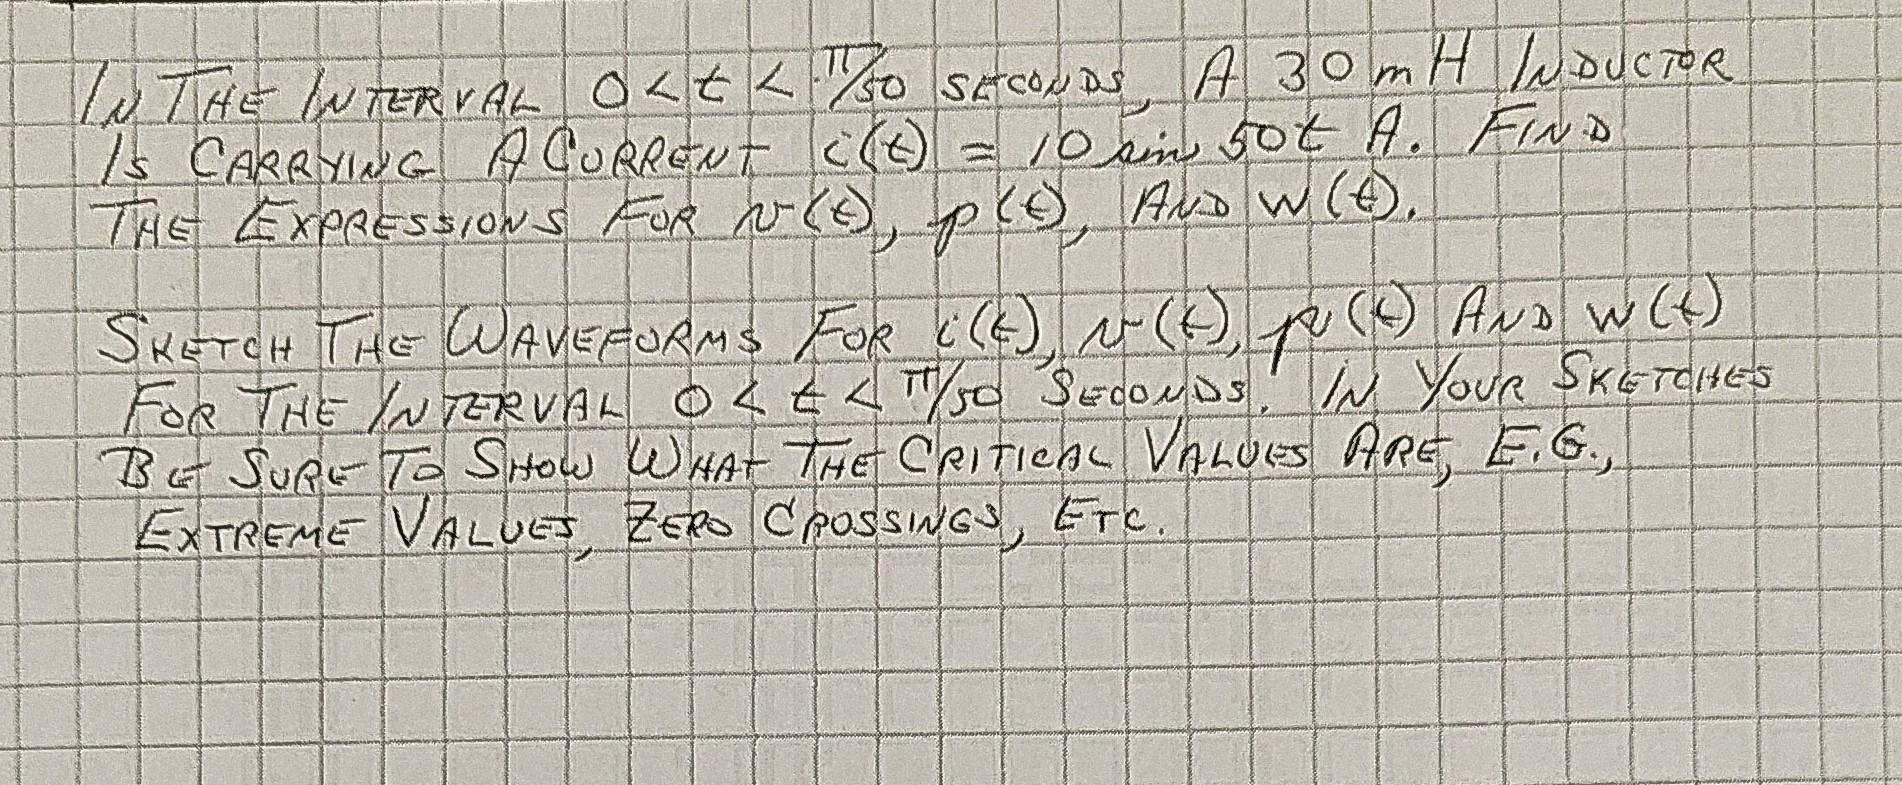 IN THE INTERVAL 0 < t < π/50 SECONDS, A 30 mH INDUCTOR
IS CARRYING A CURRENT i(t) = 10 sin 50t A. FIND
THE EXPRESSIONS FOR v(t), p(t), AND w(t).
SKETCH THE WAVEFORMS FOR i(t), v(t), p(t) AND w(t)
FOR THE INTERVAL 0 < t < π/50 SECONDS. IN YOUR SKETCHES
BE SURE TO SHOW WHAT THE CRITICAL VALUES ARE, E.G.,
EXTREME VALUES, ZERO CROSSINGS, ETC.